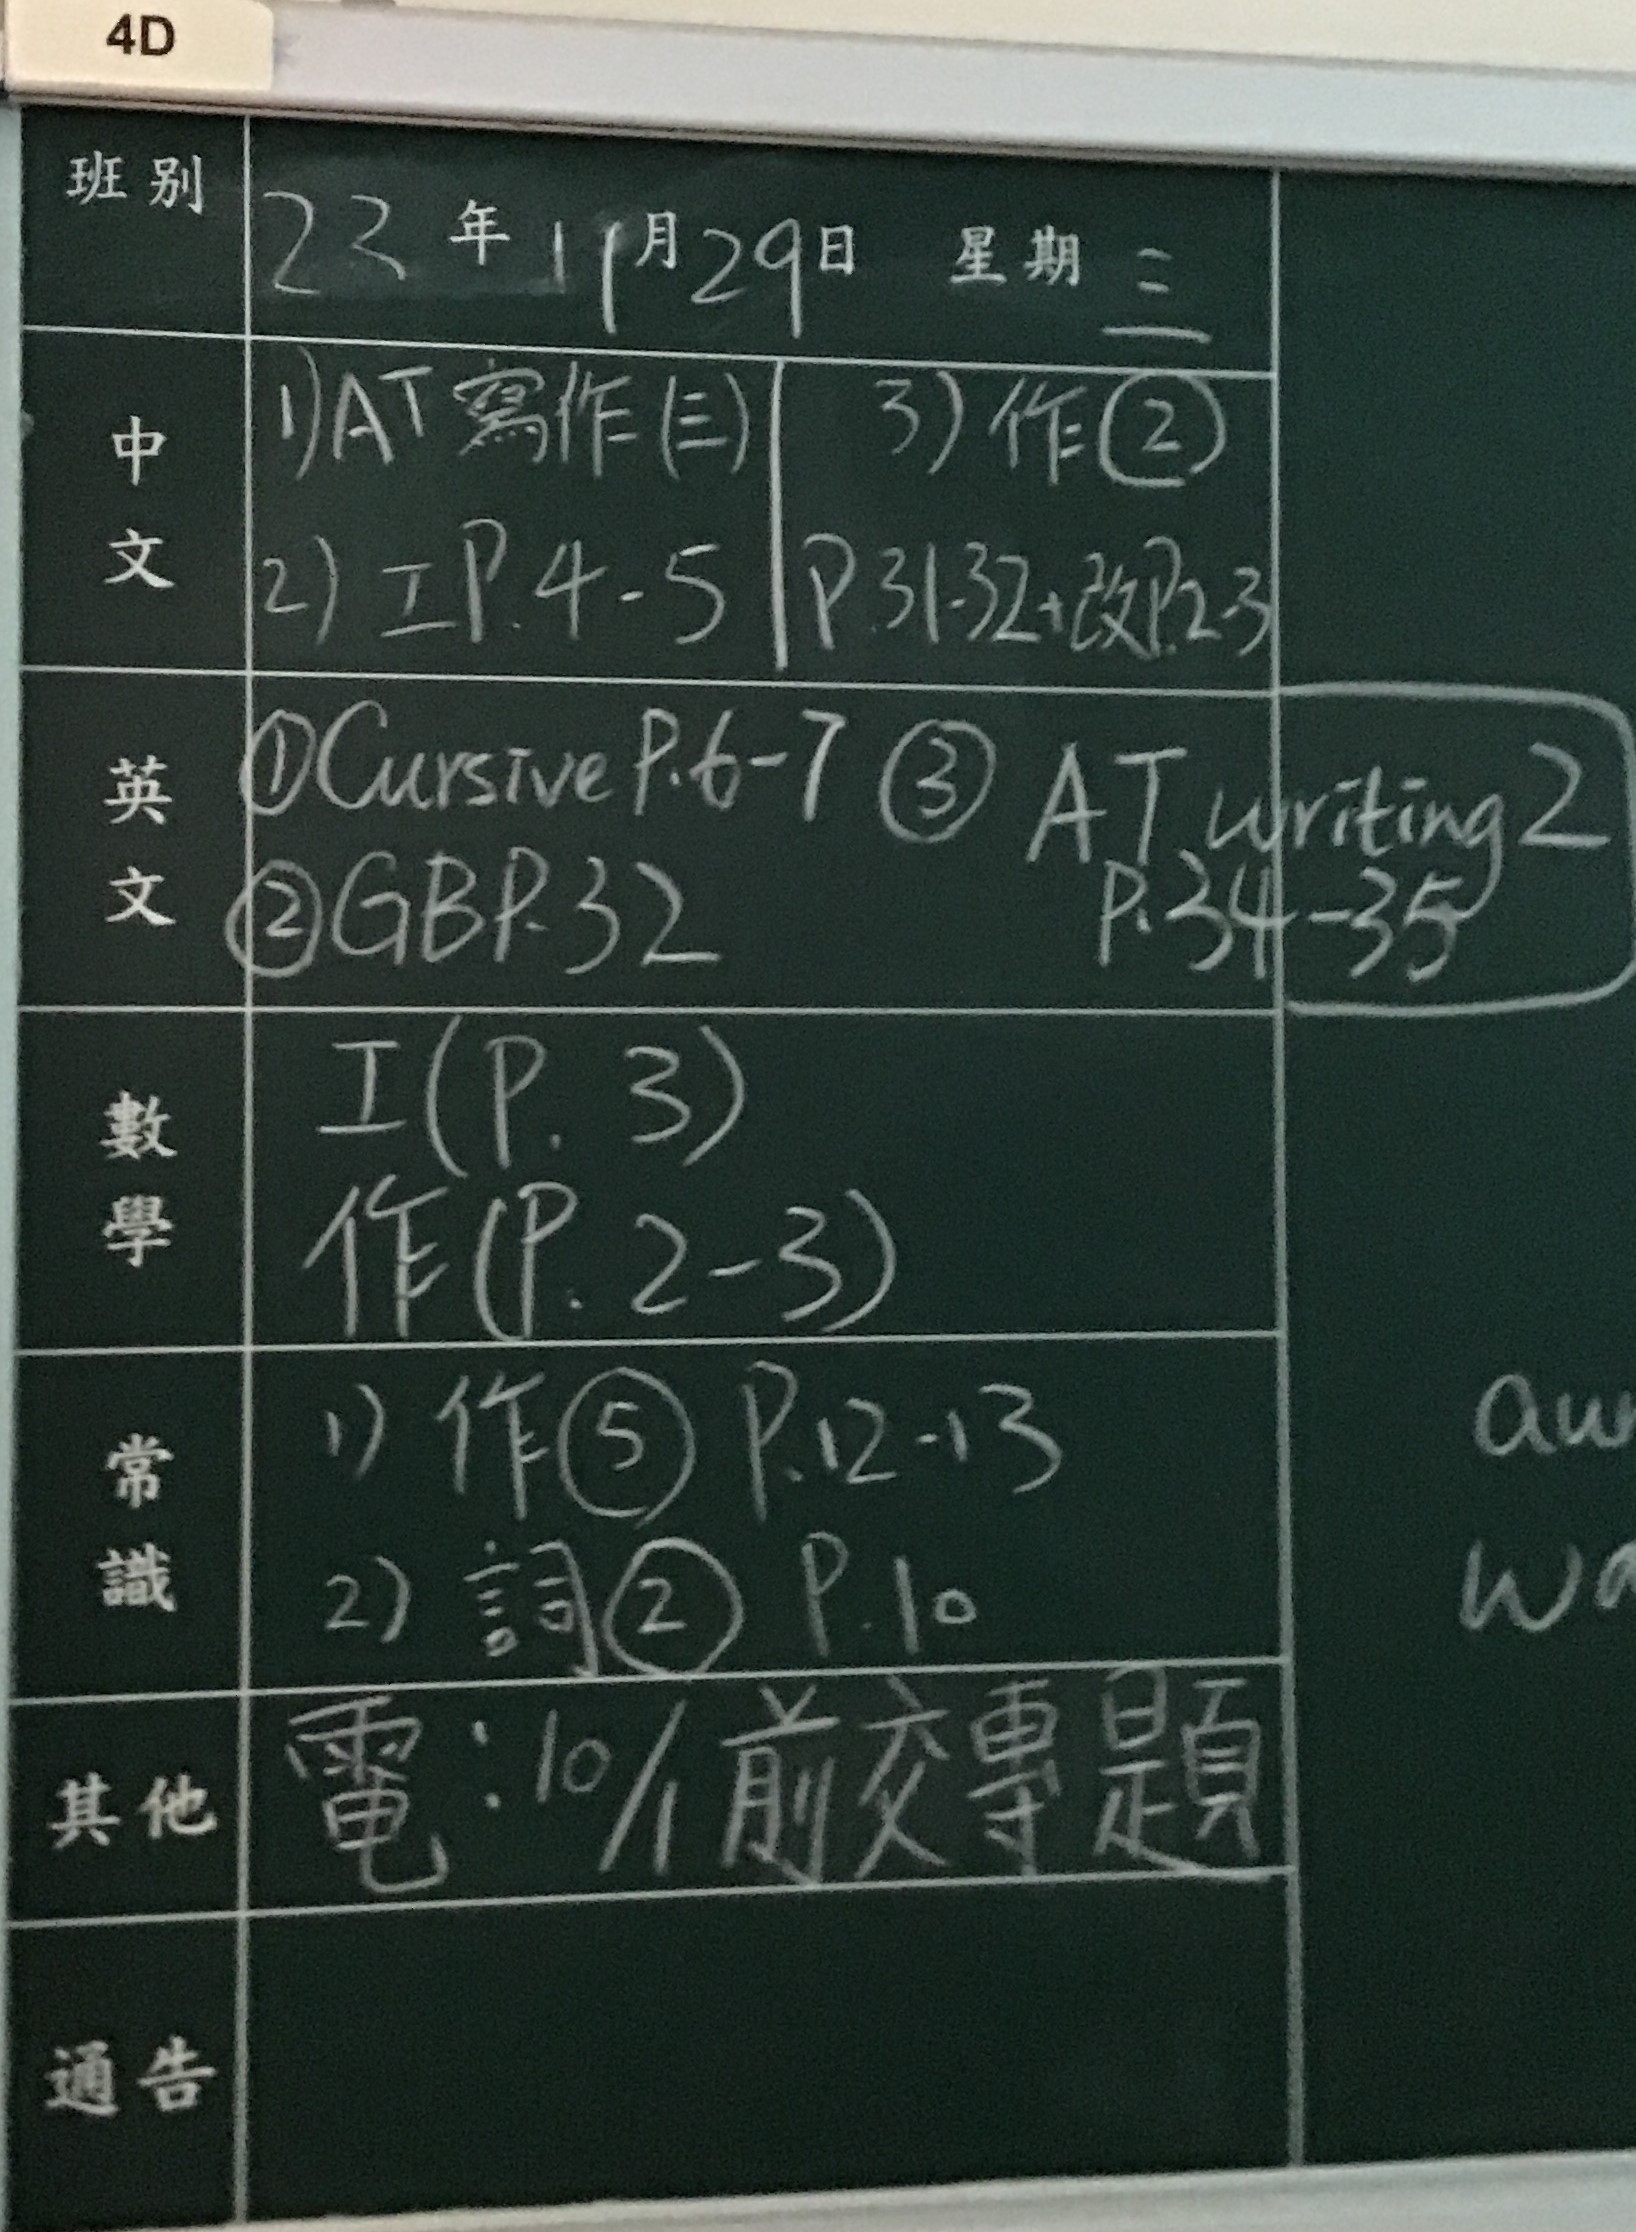 4D
班別
23 年 11 月 29 日 星期 三
中文
1) AT 寫作 (三)
2) 工 P.4-5
3) 作②
P.31-32+改P.2-3
英文
① Cursive P.6-7
② GB P.32
③ AT writing 2
P.34-35
數學
工(P. 3)
作(P. 2-3)
常識
1) 作⑤ P.12-13
2) 詞② P.10
其他
電:10/1前交專題
通告